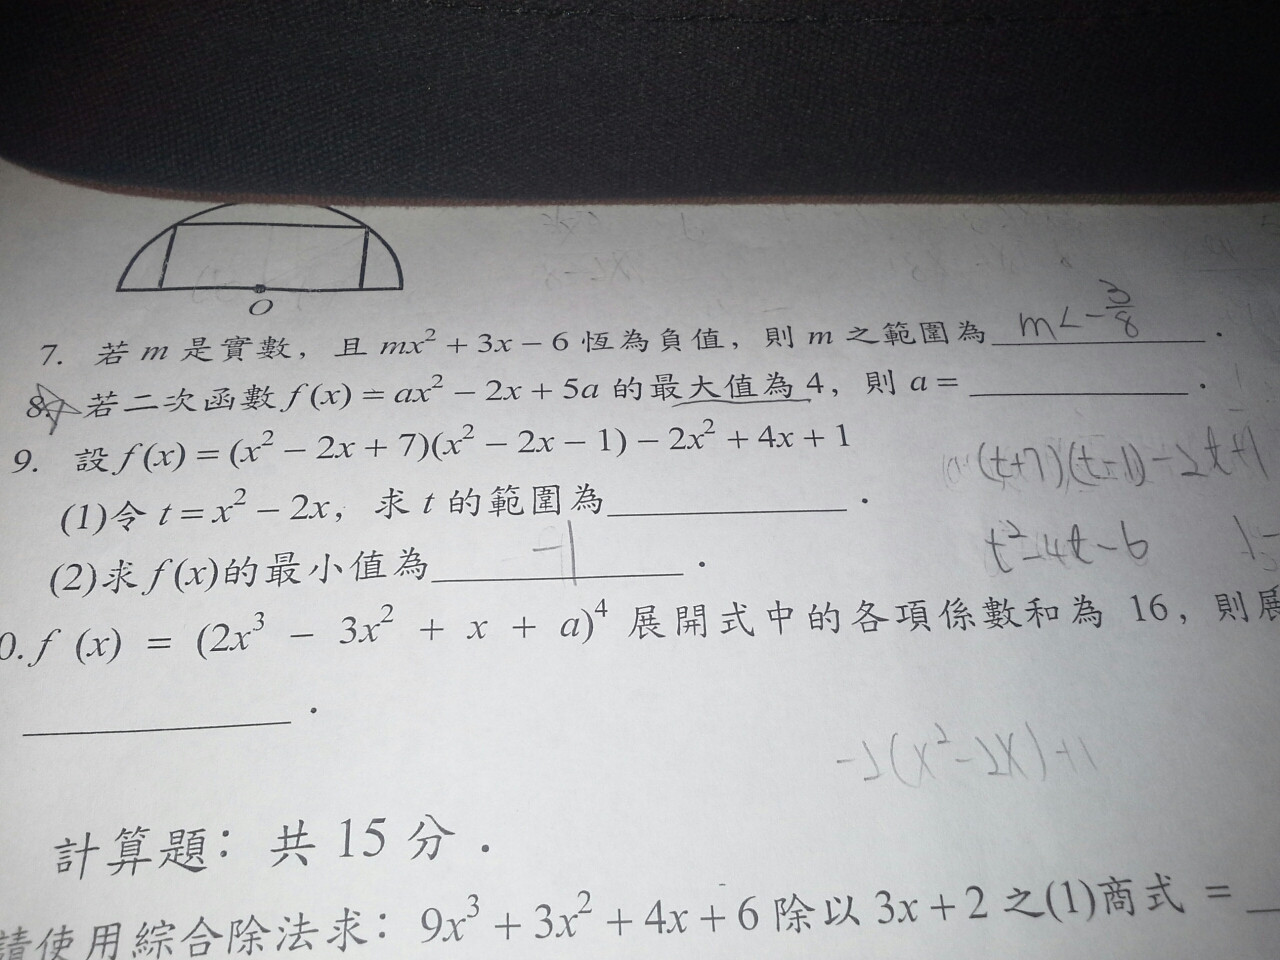 O
7. 若 m 是實數，且 mx² + 3x − 6 恆為負值，則 m 之範圍為 m < -3/8 .
8. 若二次函數 f(x) = ax² − 2x + 5a 的最大值為 4，則 a = ______ .
9. 設 f(x) = (x² − 2x + 7)(x² − 2x − 1) − 2x² + 4x + 1
(t+7)(t-1)-2t+1
(1)令 t = x² − 2x，求 t 的範圍為______ .
t²-4t-6
(2)求 f(x)的最小值為 -1 .
0. f (x) = (2x³ − 3x² + x + a)⁴ 展開式中的各項係數和為 16，則展
______ .
-2(x²-2x)+1
計算題：共 15 分．
請使用綜合除法求：9x³ + 3x² + 4x + 6 除以 3x + 2 之(1)商式 =